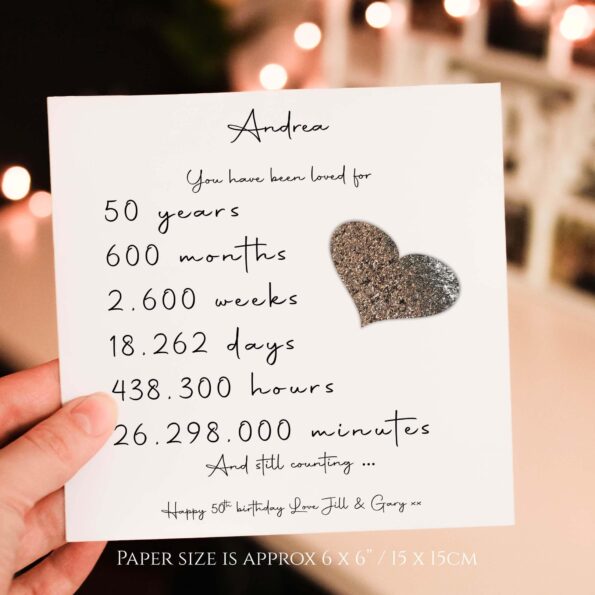 Andrea
You have been loved for
50 years
600 months
2.600 weeks
18.262 days
438.300 hours
26.298.000 minutes
And still counting ...
Happy 50th birthday Love Jill & Gary xx
PAPER SIZE IS APPROX 6 X 6" / 15 X 15CM